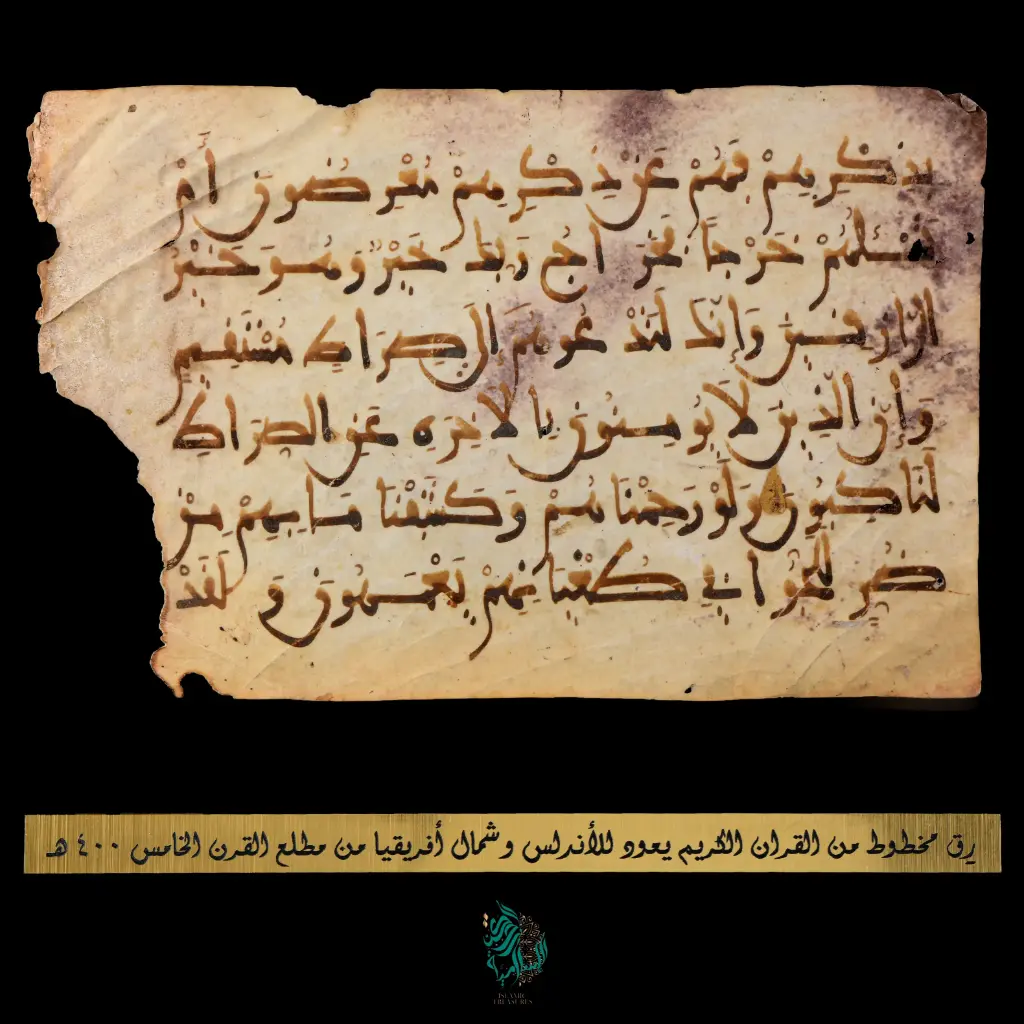 بذكرهم فهم عن ذكرهم معرضون أم
تسئلهم خرجا فخراج ربك خير وهو خير
الرازقين وإنك لتدعوهم إلى صراط مستقيم
وإن الذين لا يؤمنون بالاخرة عن الصراط
لناكبون ولو رحمناهم وكشفنا ما بهم من
ضر للجوا في طغيانهم يعمهون ولقد
رق مخطوط من القران الكريم يعود للأندلس وشمال أفريقيا من مطلع القرن الخامس ٤٠٠ هـ
ISLAMIC
TREASURES